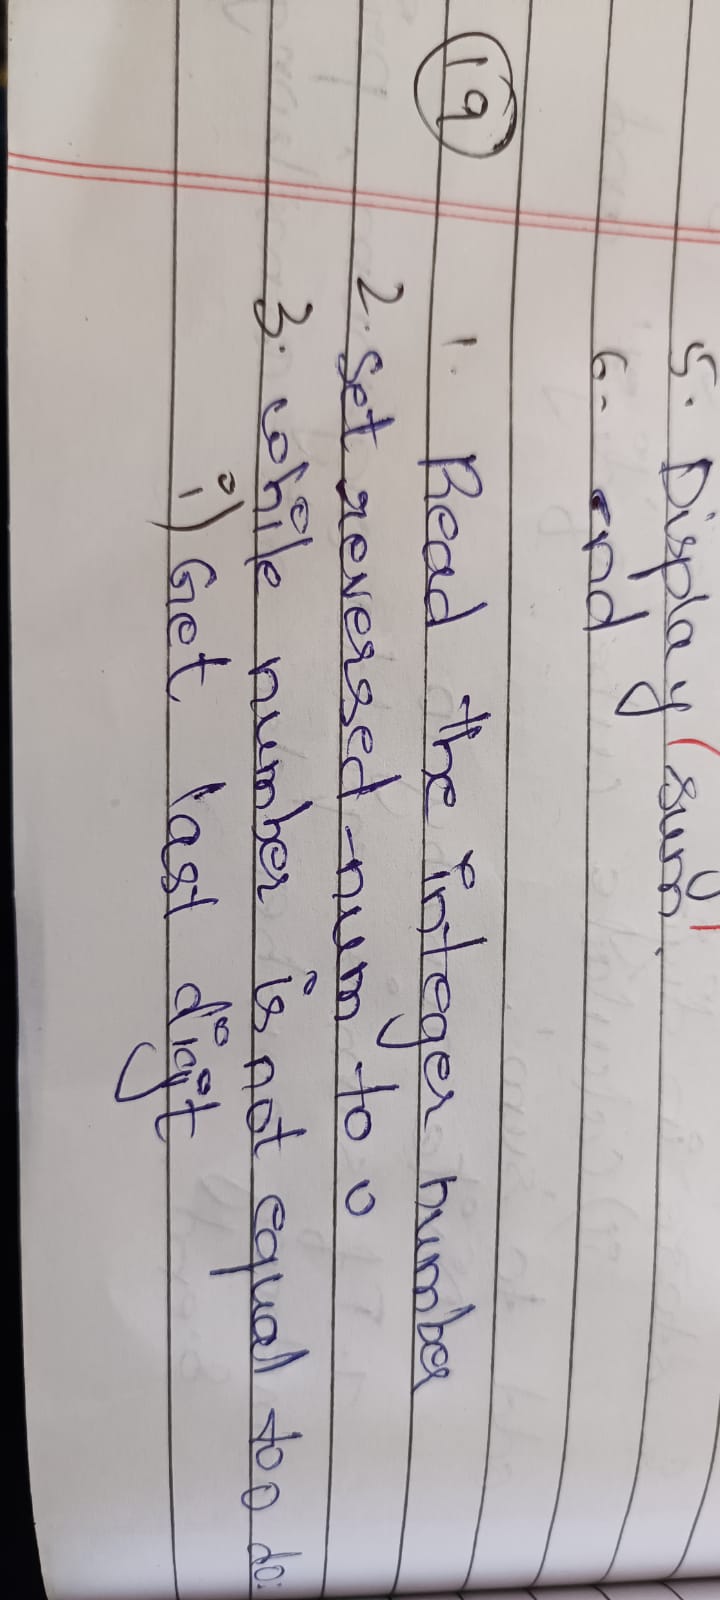 5. Display (sum)
6. end
19
1. Read the integer number
2. set reversed-num to 0
3. while number is not equal to 0 do:
i) Get last digit